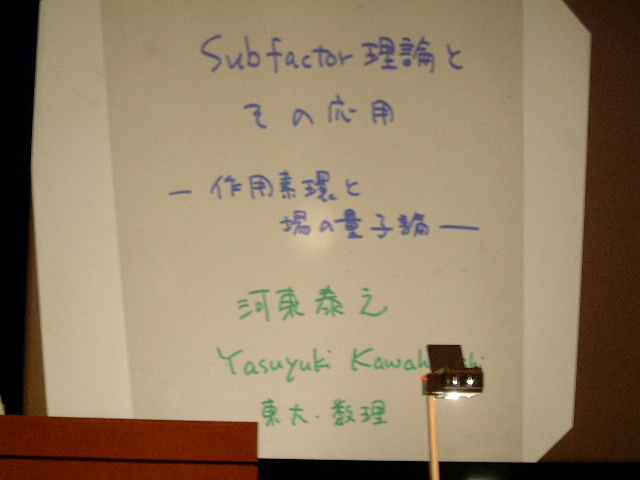 Subfactor 理論と
その応用
— 作用素環と
場の量子論 —
河東泰之
Yasuyuki
東大・数理